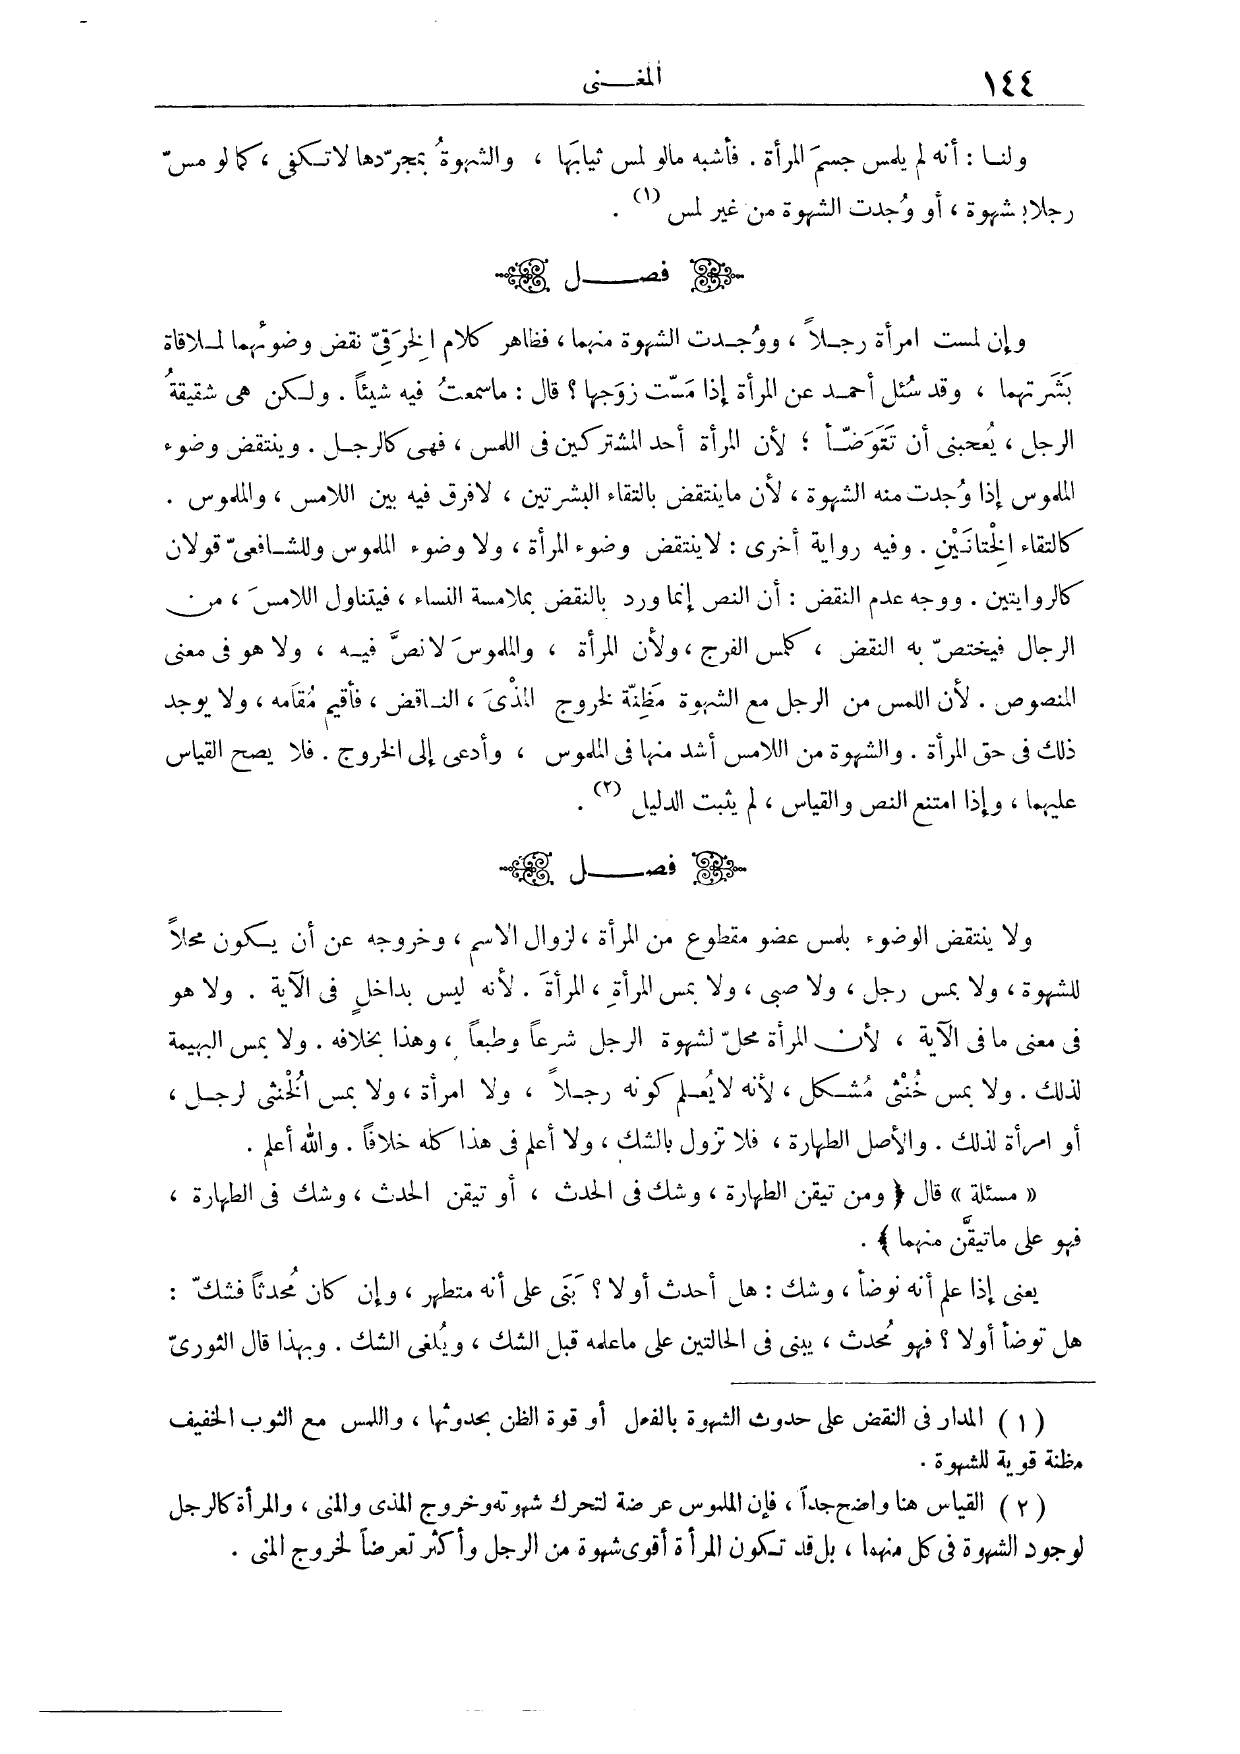 ١٤٤
المغــنى
ولنـا : أنه لم يلمس جسمَ المرأة . فأشبه مالو لمس ثيابَها ، والشهوةُ بمجرّدها لا تـكفى ، كما لو مسّ
رجلا بشهوة ، أو وُجدت الشهوة من غير لمس (١) .
فصــل
وإن لمست امرأة رجـلاً ، ووُجـدت الشهوة منهما ، فظاهر كلام الخِرَقِىّ نقض وضوئهما لمـلاقاة
بَشَرتهما ، وقد سُئل أحمـد عن المرأة إذا مَسّت زوَجها ؟ قال : ماسمعتُ فيه شيئاً . ولـكن هى شقيقةُ
الرجل ، يُعجبنى أن تَتَوَضّـأ ؛ لأن المرأة أحد المشتركين فى اللمس ، فهى كالرجـل . وينتقض وضوء
الملموس إذا وُجدت منه الشهوة ، لأن ماينتقض بالتقاء البشرتين ، لافرق فيه بين اللامس ، والملموس .
كالتقاء الِختانَيْنِ . وفيه رواية أخرى : لاينتقض وضوء المرأة ، ولا وضوء الملموس وللشـافعىّ قولان
كالروايتين . ووجه عدم النقض : أن النص إنما ورد بالنقض بملامسة النساء ، فيتناول اللامسَ ، من
الرجال فيختصّ به النقض ، كلمس الفرج ، ولأن المرأة ، والملموسَ لا نصَّ فيـه ، ولا هو فى معنى
المنصوص . لأن اللمس من الرجل مع الشهوة مَظِنّة لخروج المذْىَ ، النـاقض ، فأقيم مُقَامه ، ولا يوجد
ذلك فى حق المرأة . والشهوة من اللامس أشد منها فى الملموس ، وأدعى إلى الخروج . فلا يصح القياس
عليهما ، وإذا امتنع النص والقياس ، لم يثبت الدليل (٢) .
فصــل
ولا ينتقض الوضوء بلمس عضو مقطوع من المرأة ، لزوال الاسم ، وخروجه عن أن يـكون محلاً
للشهوة ، ولا بمس رجل ، ولا صبى ، ولا بمس المرأةِ ، المرأةَ . لأنه ليس بداخلٍ فى الآية . ولا هو
فى معنى ما فى الآية ، لأن المرأة محلّ لشهوة الرجل شرعاً وطبعاً ، وهذا بخلافه . ولا بمس البهيمة
لذلك . ولا بمس خُنْثى مُشـكل ، لأنه لا يُعـلم كونه رجـلاً ، ولا امرأة ، ولا بمس الُخنثى لرجـل ،
أو امرأة لذلك . والأصل الطهارة ، فلا تزول بالشك ، ولا أعلم فى هذا كله خلافاً . والله أعلم .
« مسئلة » قال ﴿ ومن تيقن الطهارة ، وشك فى الحدث ، أو تيقن الحدث ، وشك فى الطهارة ،
فهو على ماتيقَّن منهما ﴾ .
يعنى إذا علم أنه نوضأ ، وشك : هل أحدث أو لا ؟ بَنَى على أنه متطهر ، وإن كان مُحدثاً فشكّ :
هل توضأ أولا ؟ فهو مُحدث ، يبنى فى الحالتين على ماعلمه قبل الشك ، ويُلغى الشك . وبهذا قال الثورىّ
( ١ ) المدار فى النقض على حدوث الشهوة بالفعل أو قوة الظن بحدوثها ، واللمس مع الثوب الخفيف
مظنة قوية للشهوة .
( ٢ ) القياس هنا واضح جداً ، فإن الملموس عرضة لتحرك شهوته وخروج المذى والمنى ، والمرأة كالرجل
لوجود الشهوة فى كل منهما ، بل قد تـكون المرأة أقوى شهوة من الرجل وأكثر تعرضاً لخروج المنى .